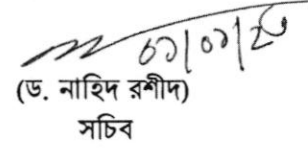 ০১|০১|২৩
(ড. নাহিদ রশীদ)
সচিব